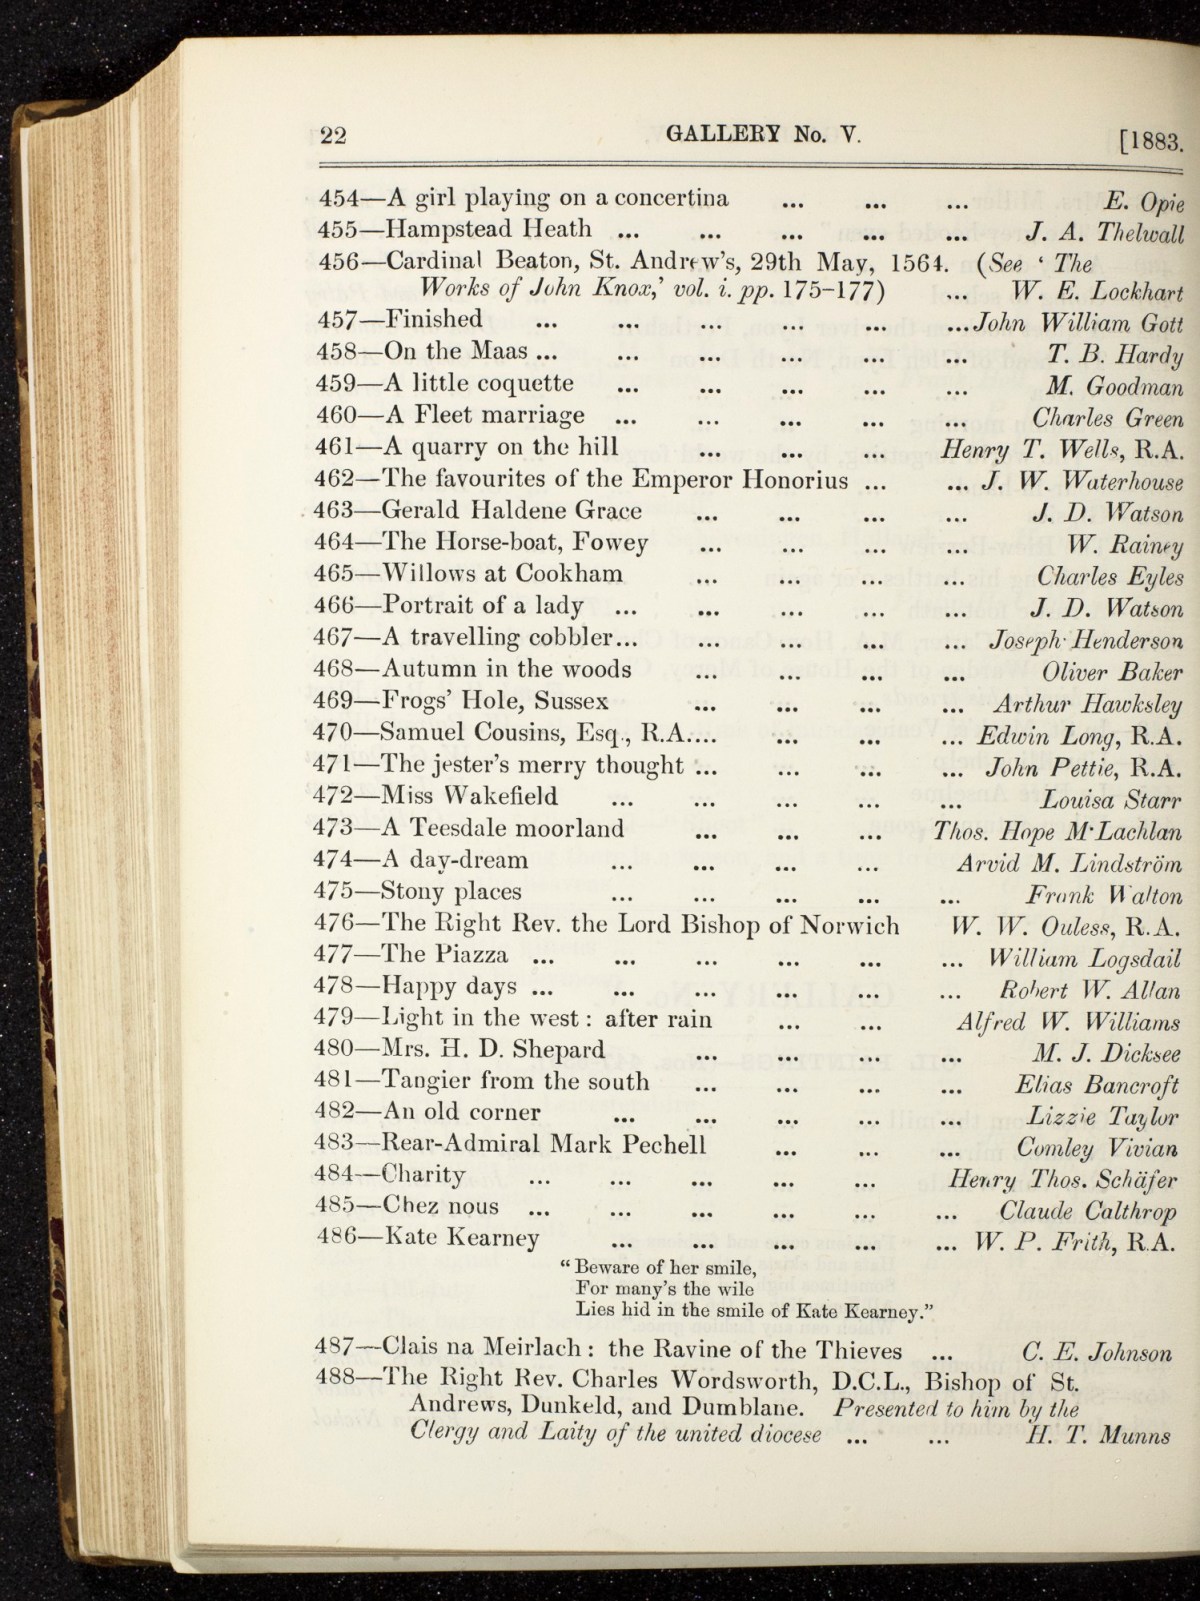 22 GALLERY No. V. [1883.
454—A girl playing on a concertina ... ... ... E. Opie
455—Hampstead Heath ... ... ... ... ... J. A. Thelwall
456—Cardinal Beaton, St. Andrew's, 29th May, 1564. (See ‘ The
Works of John Knox,’ vol. i. pp. 175–177) ... W. E. Lockhart
457—Finished ... ... ... ... ... ... John William Gott
458—On the Maas ... ... ... ... ... ... T. B. Hardy
459—A little coquette ... ... ... ... ... M. Goodman
460—A Fleet marriage ... ... ... ... ... Charles Green
461—A quarry on the hill ... ... ... Henry T. Wells, R.A.
462—The favourites of the Emperor Honorius ... ... J. W. Waterhouse
463—Gerald Haldene Grace ... ... ... ... J. D. Watson
464—The Horse-boat, Fowey ... ... ... ... W. Rainey
465—Willows at Cookham ... ... ... ... Charles Eyles
466—Portrait of a lady ... ... ... ... ... J. D. Watson
467—A travelling cobbler... ... ... ... ... Joseph Henderson
468—Autumn in the woods ... ... ... ... Oliver Baker
469—Frogs' Hole, Sussex ... ... ... ... Arthur Hawksley
470—Samuel Cousins, Esq., R.A.... ... ... ... Edwin Long, R.A.
471—The jester's merry thought ... ... ... ... John Pettie, R.A.
472—Miss Wakefield ... ... ... ... ... Louisa Starr
473—A Teesdale moorland ... ... ... Thos. Hope M‘Lachlan
474—A day-dream ... ... ... ... Arvid M. Lindström
475—Stony places ... ... ... ... ... Frank Walton
476—The Right Rev. the Lord Bishop of Norwich W. W. Ouless, R.A.
477—The Piazza ... ... ... ... ... ... William Logsdail
478—Happy days ... ... ... ... ... ... Robert W. Allan
479—Light in the west : after rain ... ... Alfred W. Williams
480—Mrs. H. D. Shepard ... ... ... ... M. J. Dicksee
481—Tangier from the south ... ... ... ... Elias Bancroft
482—An old corner ... ... ... ... ... Lizzie Taylor
483—Rear-Admiral Mark Pechell ... ... ... Comley Vivian
484—Charity ... ... ... ... ... Henry Thos. Schäfer
485—Chez nous ... ... ... ... ... ... Claude Calthrop
486—Kate Kearney ... ... ... ... ... W. P. Frith, R.A.
“ Beware of her smile,
For many's the wile
Lies hid in the smile of Kate Kearney.”
487—Clais na Meirlach : the Ravine of the Thieves ... C. E. Johnson
488—The Right Rev. Charles Wordsworth, D.C.L., Bishop of St.
Andrews, Dunkeld, and Dumblane. Presented to him by the
Clergy and Laity of the united diocese ... ... H. T. Munns